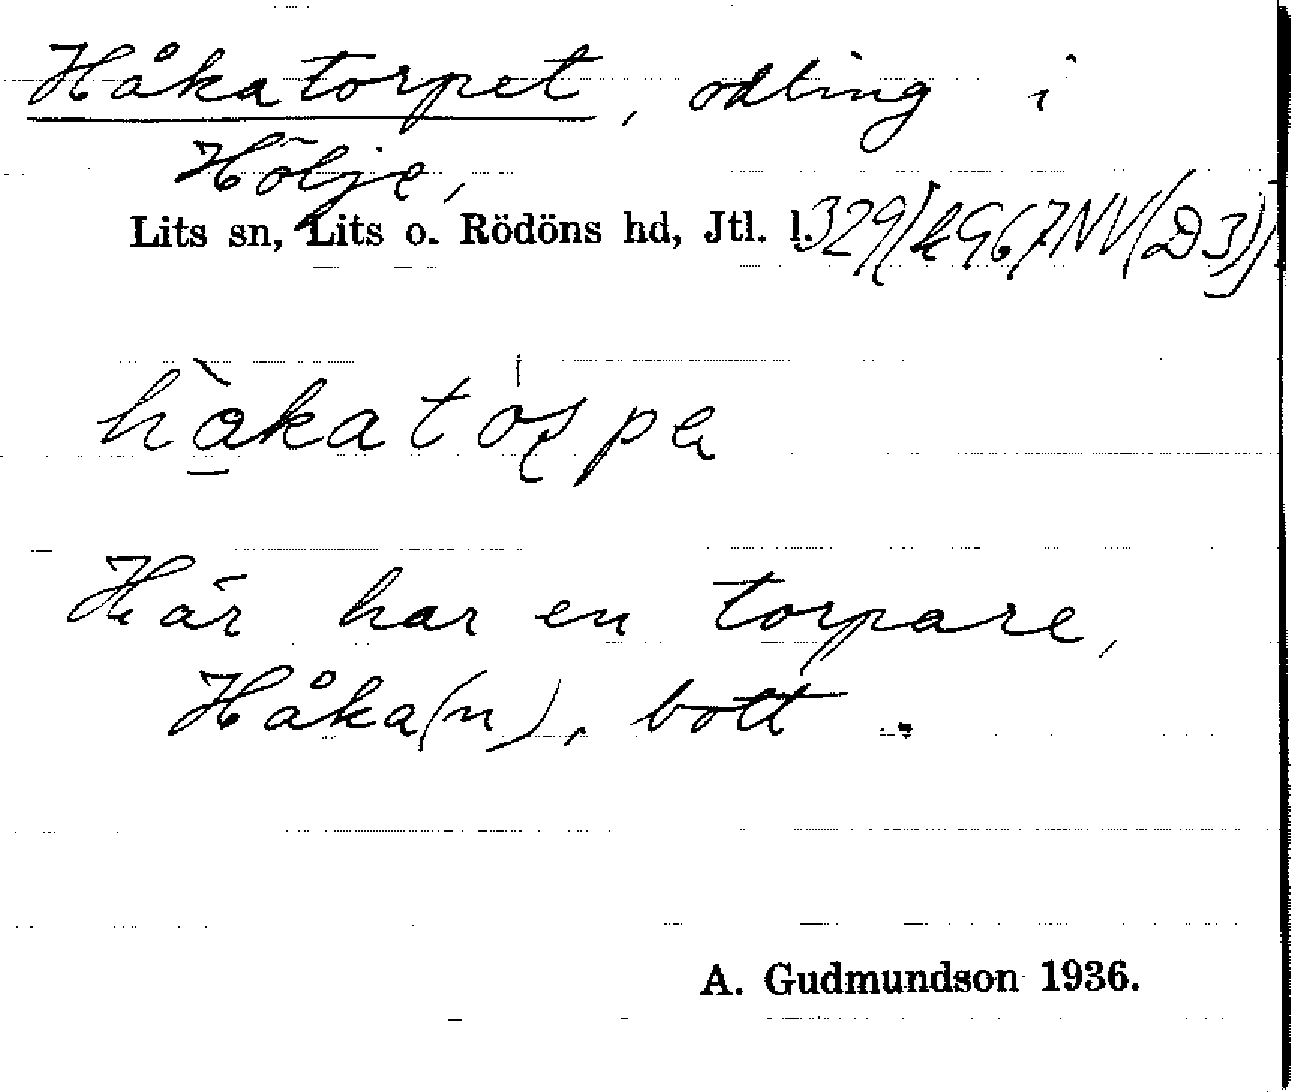 Håkatorpet, odling i
Hölje,
Lits sn, Lits o. Rödöns hd, Jtl. l.
hàkatospa
Här har en torpare,
Håka(n), bott.
A. Gudmundson 1936.